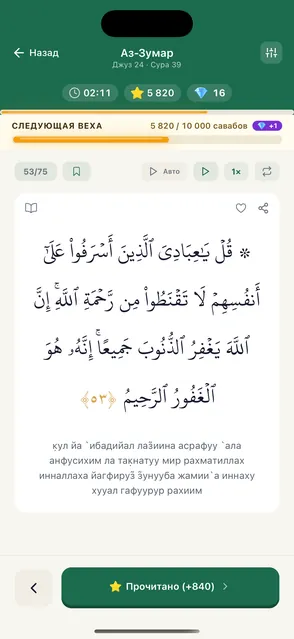 Назад
Аз-Зумар
Джуз 24 · Сура 39
02:11
5 820
16
СЛЕДУЮЩАЯ ВЕХА
5 820 / 10 000 савабов
+1
53/75
Авто
1×
۞ قُلْ يَـٰعِبَادِىَ ٱلَّذِينَ أَسْرَفُوا۟ عَلَىٰٓ
أَنفُسِهِمْ لَا تَقْنَطُوا۟ مِن رَّحْمَةِ ٱللَّهِ ۚ إِنَّ
ٱللَّهَ يَغْفِرُ ٱلذُّنُوبَ جَمِيعًا ۚ إِنَّهُۥ هُوَ
ٱلْغَفُورُ ٱلرَّحِيمُ ﴿٥٣﴾
қул йа `ибадийал лаз̃иина асрафуу `ала
анфусихим ла тақнатуу мир рахматиллах
инналлаха йагфируз̃ з̃унууба жамии`а иннаху
хууал гафуурур рахиим
Прочитано (+840)